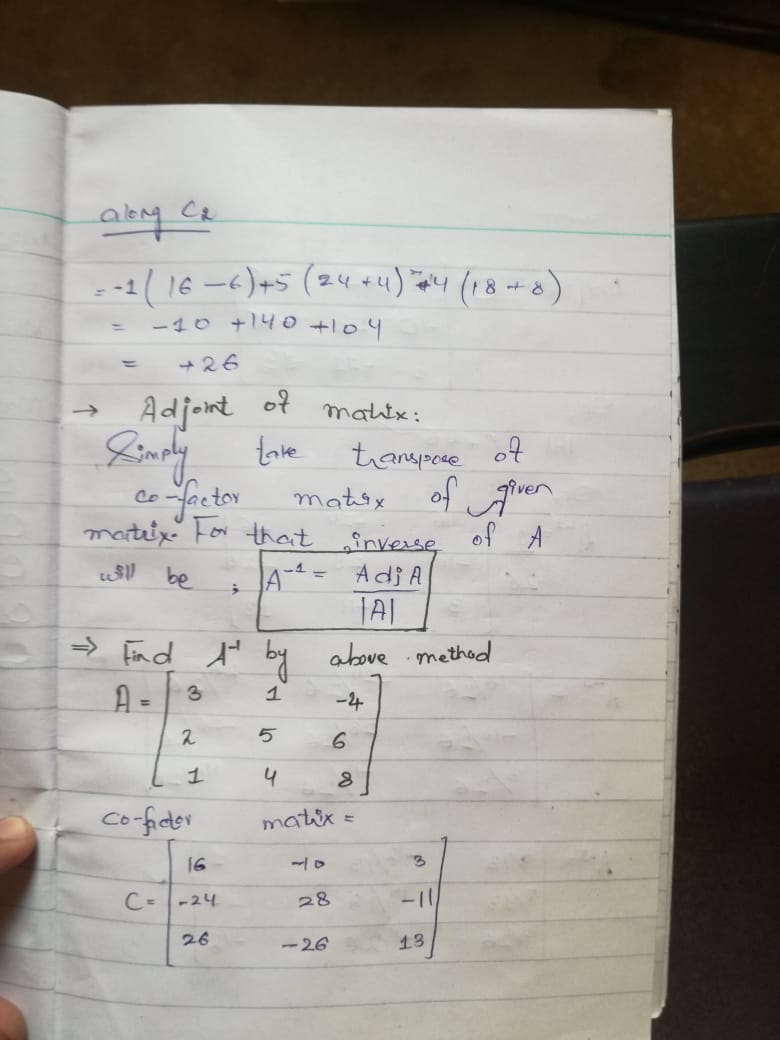 along C2
= -1( 16 - 6) +5 (24 + 4) 4 (18 + 8)
= -10 + 140 + 104
= +26
→ Adjoint of matrix:
Simply take transpose of
co-factor matrix of given
matrix. For that inverse of A
will be ; A⁻¹ = Adj A
|A|
⇒ Find A⁻¹ by above method
A = 3 1 -4
2 5 6
1 4 8
Co-factor matrix =
16 -10 3
C = -24 28 -11
26 -26 13